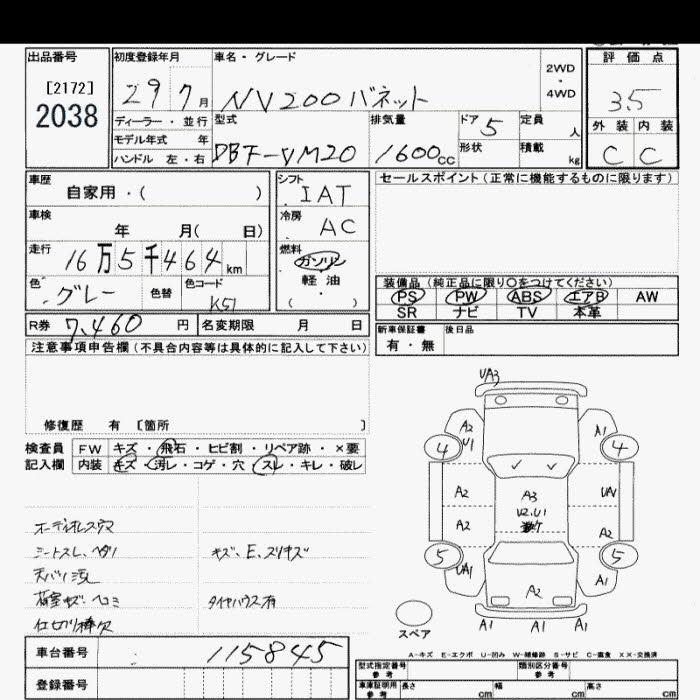 出品番号 初度登録年月 車名・グレード 評価点
[2172]
2038
29 7月 NV200バネット 2WD・4WD 3.5
ディーラー・並行 型式 排気量 ドア 5 定員 人 外装 内装
モデル年式 年
ハンドル 左・右 DBF-VM20 1600cc 形状 積載 kg C C
車歴 自家用・( ) シフト IAT セールスポイント(正常に機能するものに限ります)
車検 年 月( 日) 冷房 AC
走行 16万5千464km 燃料 ガソリン・軽油・( )
色 グレー 色替 色コード K51
装備品(純正品に限り○をつけてください)
PS PW ABS エアB AW
SR ナビ TV 本革
R券 7,460円 名変期限 月 日
新車保証書 有・無 後日品
注意事項申告欄(不具合内容等は具体的に記入して下さい)
修復歴 有 [箇所 ]
検査員記入欄 FW キズ・飛石・ヒビ割・リペア跡・×要
内装 キズ・汚レ・コゲ・穴・スレ・キレ・破レ
UA3
A2 U1 A1
4 4
A2 A3 UA1
U2.U1
A2 A2
5 5
UA1 A2 A1
A1 A1 A1
オーディオレス穴
シートスレ、ヘタリ キズ、E、スリキズ
天バリ汚レ
荷室キズ・ヘコミ タイヤハウス有
スペア
A-キズ E-エクボ U-凹み W-補修跡 S-サビ C-腐食 XX-交換済
車台番号 115845
登録番号
型式指定番号 参考 類別区分番号 参考
車庫証明用 参考 長さ cm 幅 cm 高さ cm